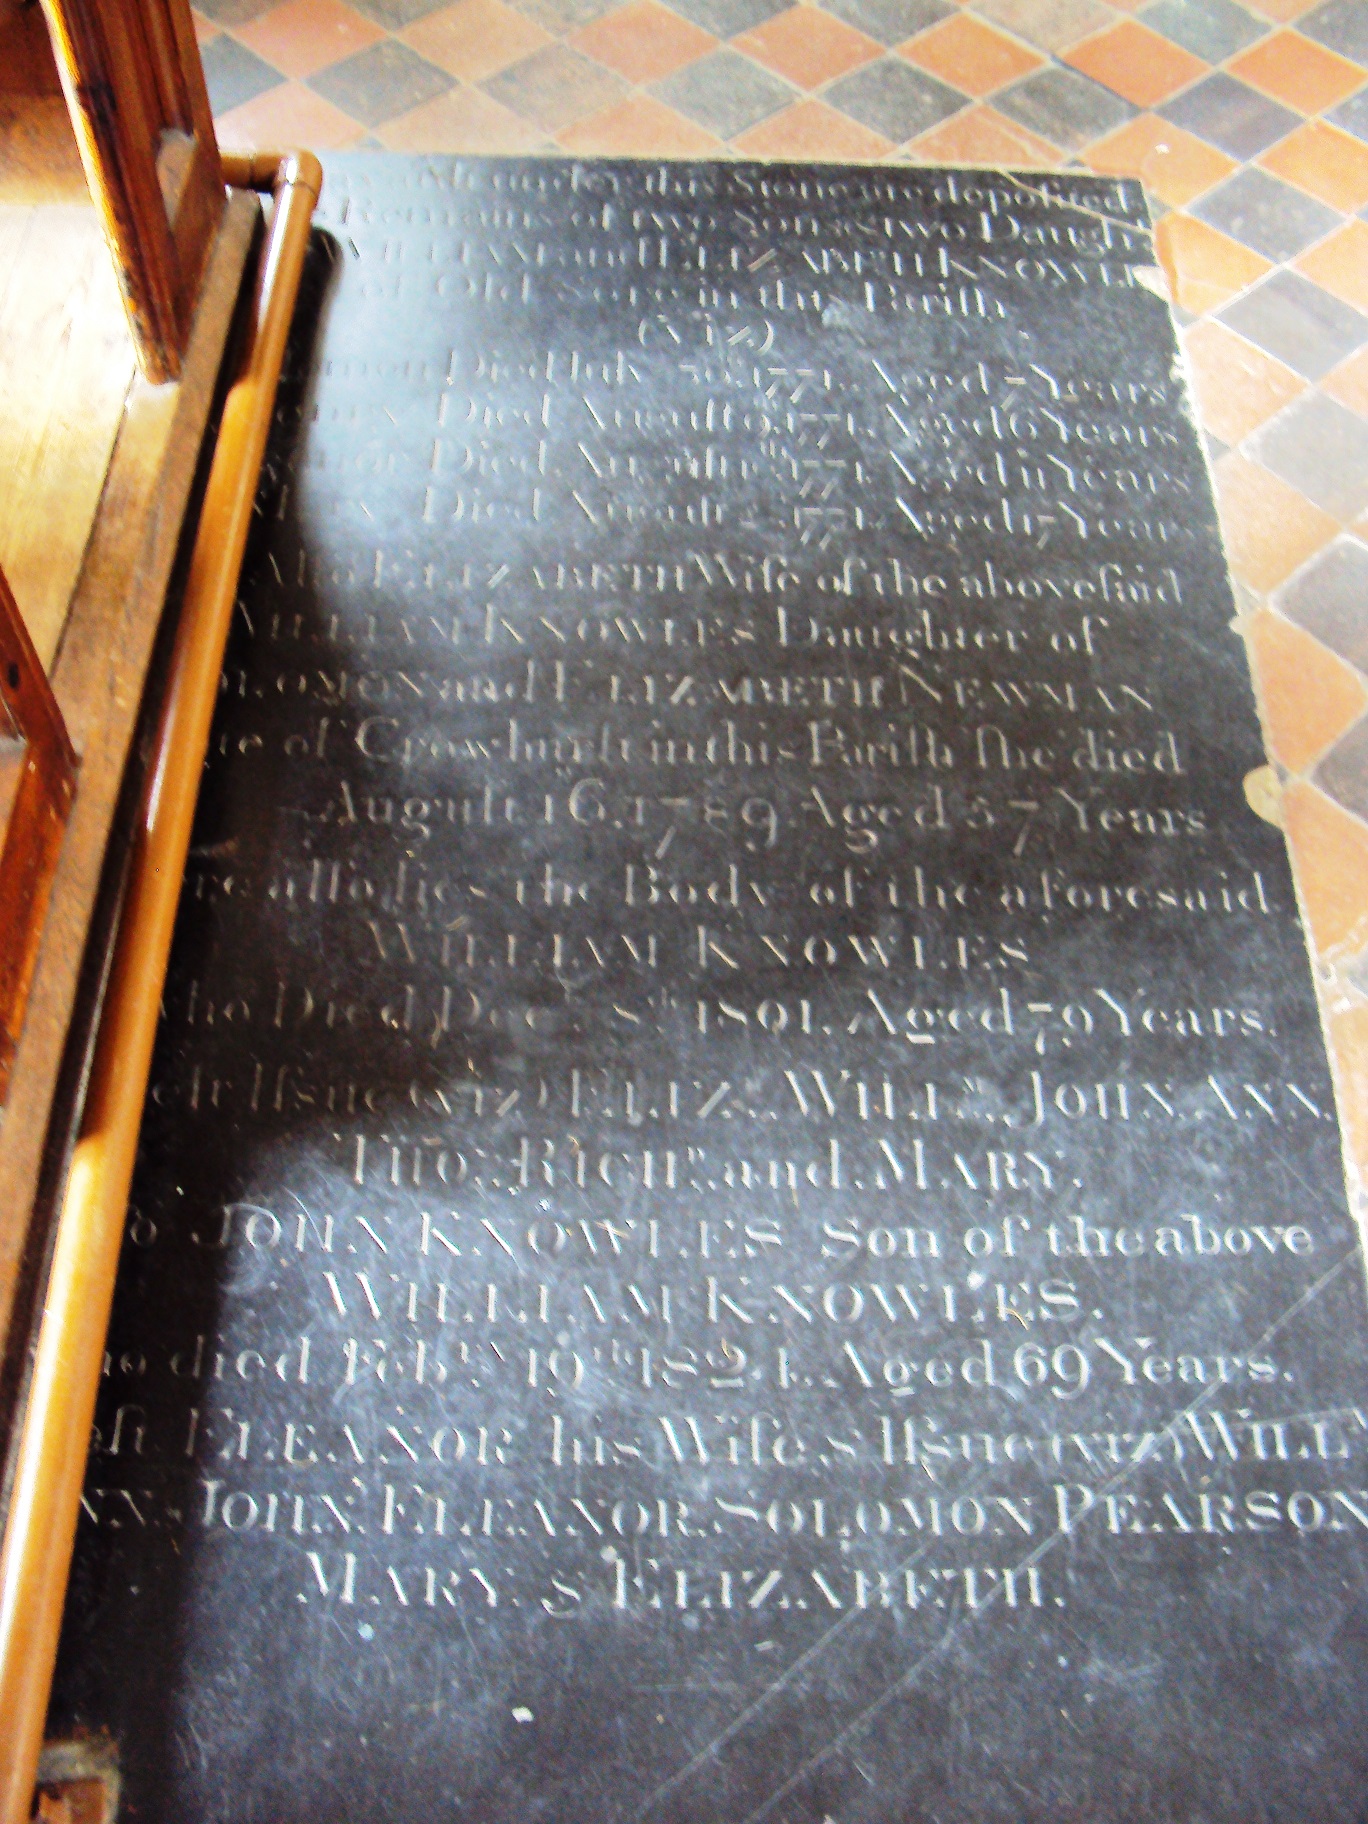 under this Stone are deposited
Remains of two Sons & two Daugh
WILLIAM and ELIZABETH KNOWLE
of Old Sore in this Parish
(Viz)
omon Died July 30. 1771. Aged 7 Years
Died August 9. 1771. Aged 6 Years
Died August th 1771. Aged 11 Years
Mary Died August 1771. Aged 17 Years
Also ELIZABETH Wife of the abovesaid
WILLIAM KNOWLES Daughter of
OLOMON and ELIZABETH NEWMAN
te of Crowhurst in this Parish She died
August 16. 1789. Aged 57 Years
re also lies the Body of the aforesaid
WILLIAM KNOWLES
who Died Decr. 8th 1801. Aged 79 Years.
eft Issue (viz) ELIZ. WILLm. JOHN. ANN.
THOs. RICHd. and MARY.
o JOHN KNOWLES Son of the above
WILLIAM KNOWLES.
ho died Feby. 19th 1821. Aged 69 Years.
eft ELEANOR his Wife, & Issue (viz) WILLm
NN. JOHN. ELEANOR. SOLOMON PEARSON
MARY & ELIZABETH.